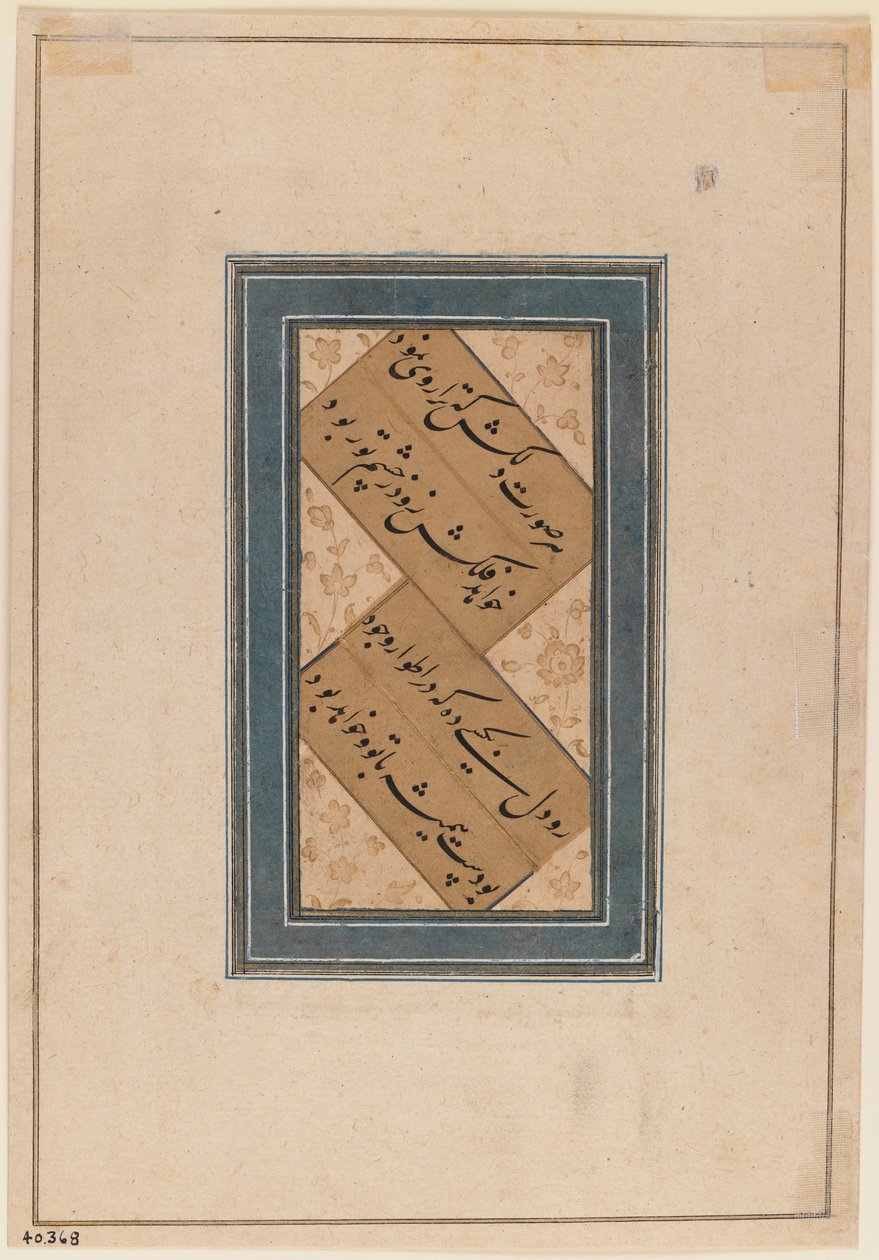 هر صورت دلکش که ترا روی نمود
خواهد فلکش ز دور چشم تو ربود
رو دل بکسی ده که در اطوار وجود
بودست همیشه با تو و خواهد بود
40.368